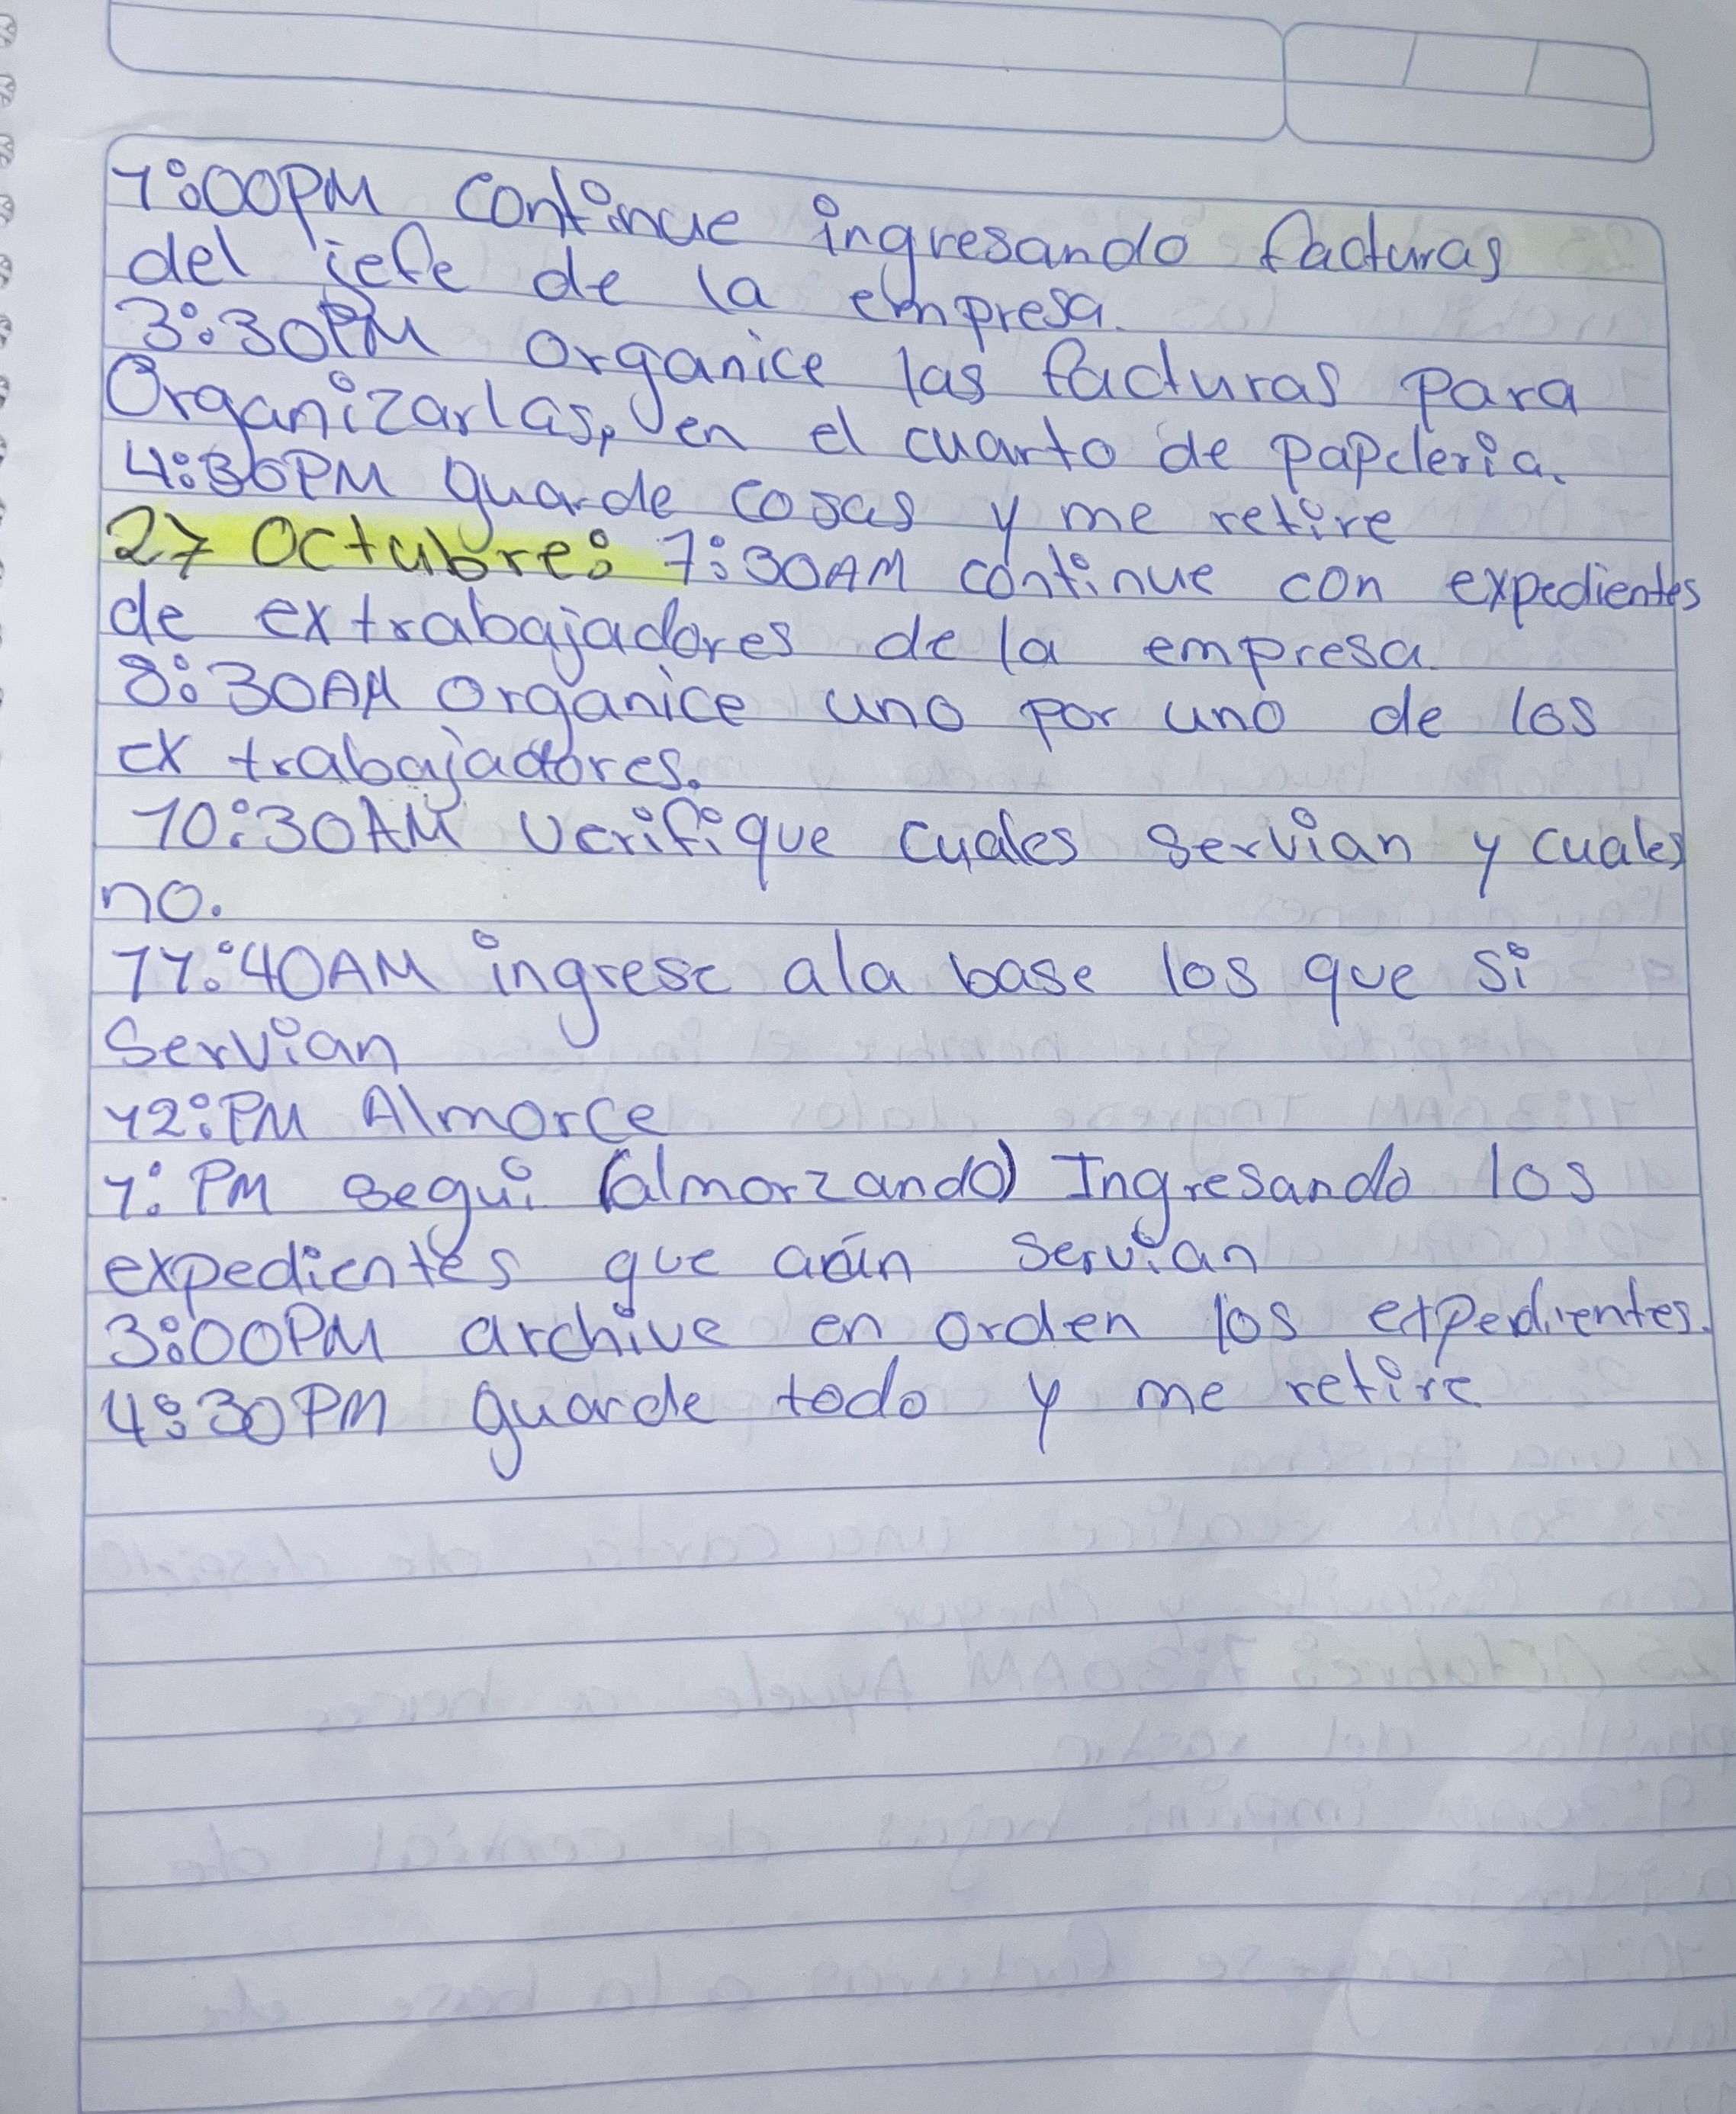 1:00PM continue ingresando facturas
del jefe de la empresa.
3:30PM organice las facturas para
Organizarlas, en el cuarto de papeleria.
4:30PM guarde cosas y me retire
27 Octubre: 7:30AM continue con expedientes
de extrabajadores de la empresa.
8:30AM organice uno por uno de los
ex trabajadores.
10:30AM verifique cuales servian y cuales
no.
11:40AM ingrese ala base los que si
Servian
12:PM Almorce
1: PM segui (almorzando) Ingresando los
expedientes que aún servian
3:00PM archive en orden los expedientes.
4:30PM guarde todo y me retire